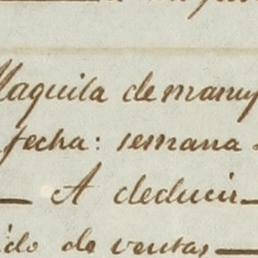 Maquila de manuf
fecha: semana
A deducir
ido de ventas